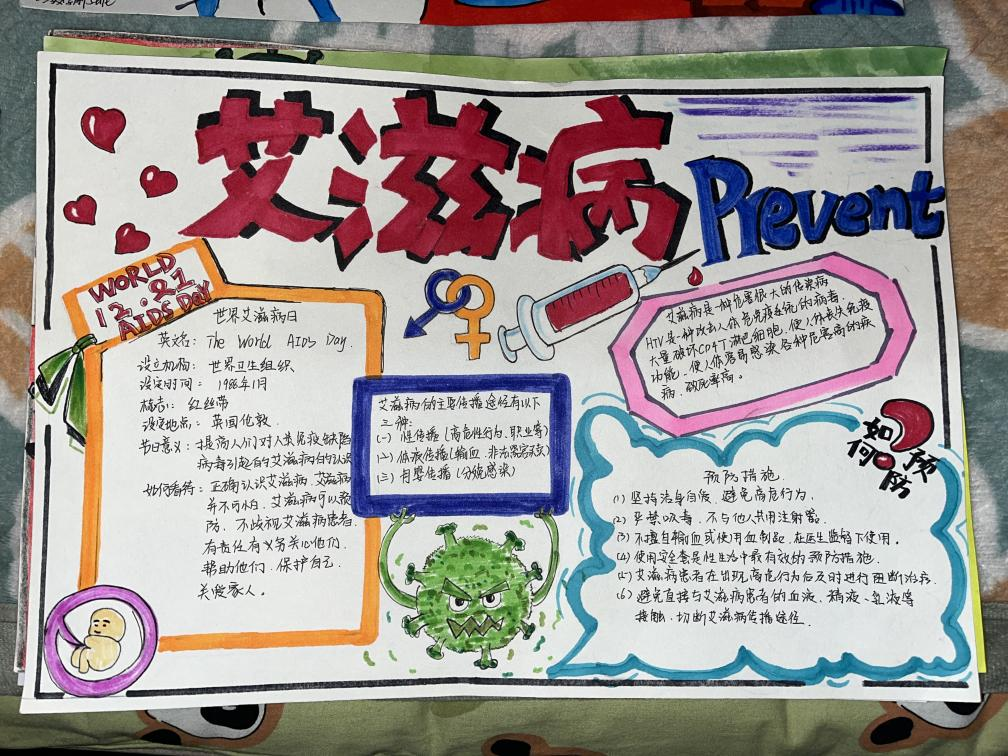 艾滋病
Prevent
WORLD
12.01
AIDS DAY
世界艾滋病日
英文名: The World AIDS Day.
设立机构: 世界卫生组织
设定时间: 1988年1月
标志: 红丝带
设定地点: 英国伦敦
节日意义: 提高人们对人类免疫缺陷
病毒引起的艾滋病的认识
如何看待: 正确认识艾滋病, 艾滋病
并不可怕. 艾滋病可以预
防. 不歧视艾滋病患者.
有责任有义务关心他们.
帮助他们. 保护自己.
关爱家人。
艾滋病的主要传播途径有以下
三种:
(一) 性传播 (高危性行为、职业等)
(二) 体液传播 (输血、非法
(三) 母婴传播 (分娩感染)
艾滋病是一种危害很大的传染病
HIV是一种攻击人体免疫系统的病毒.
大量破坏CD4T淋巴细胞, 使人体丧失免疫
功能. 使人体容易感染各种危害高的疾
病. 致死率高。
如何预防
预防措施
(1) 坚持洁身自爱、避免高危行为、
(2) 严禁吸毒、不与他人共用注射器.
(3) 不擅自输血或使用血制品, 在医生监督下使用。
(4) 使用安全套是性生活中最有效的预防措施.
(5) 艾滋病患者在出现高危行为后及时进行阻断治疗.
(6) 避免直接与艾滋病患者的血液、精液、乳液等
接触, 切断艾滋病传播途径.